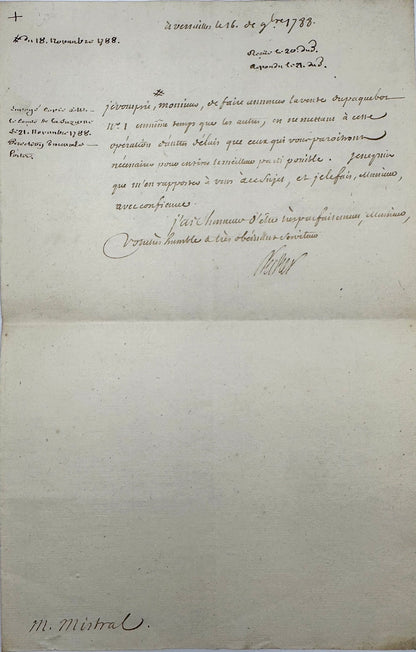 +
à versailles le 16. de 9bre 1788.
# du 18. Novembre 1788.
Reçüe le 20. dud.
Repondu le 21. dud.
Envoyé copie à M. le
Comte de La Luzerne
le 21. Novembre 1788.
#
je vous prie, monsieur, de faire annoncer la vente du paquebot
n.º 1 en même temps que les autres, en ne mettant à cette
opération d'autres délais que ceux qui vous paroitront
nécessaires pour en tirer le meilleur parti possible. je ne puis
que m'en rapporter à vous à ce sujet, et je le fais, Monsieur,
avec confiance.
j'ai l'honneur d'être très parfaitement, Monsieur,
Votre très humble et très obéissant Serviteur
Necker
M. Mistral.